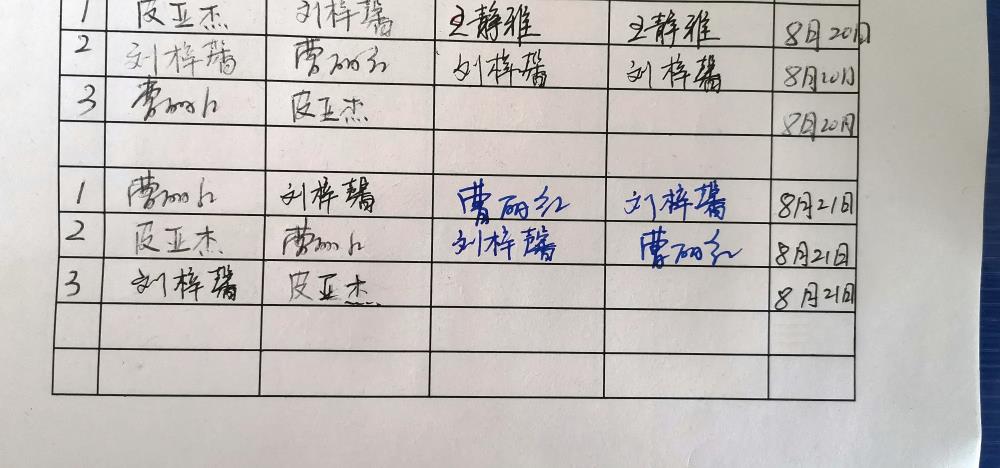 1 皮亚杰 刘梓馨 王静雅 王静雅 8月20日
2 刘梓馨 曹丽红 刘梓馨 刘梓馨 8月20日
3 曹丽红 皮亚杰 8月20日
1 曹丽红 刘梓馨 曹丽红 刘梓馨 8月21日
2 皮亚杰 曹丽红 刘梓馨 曹丽红 8月21日
3 刘梓馨 皮亚杰 8月21日